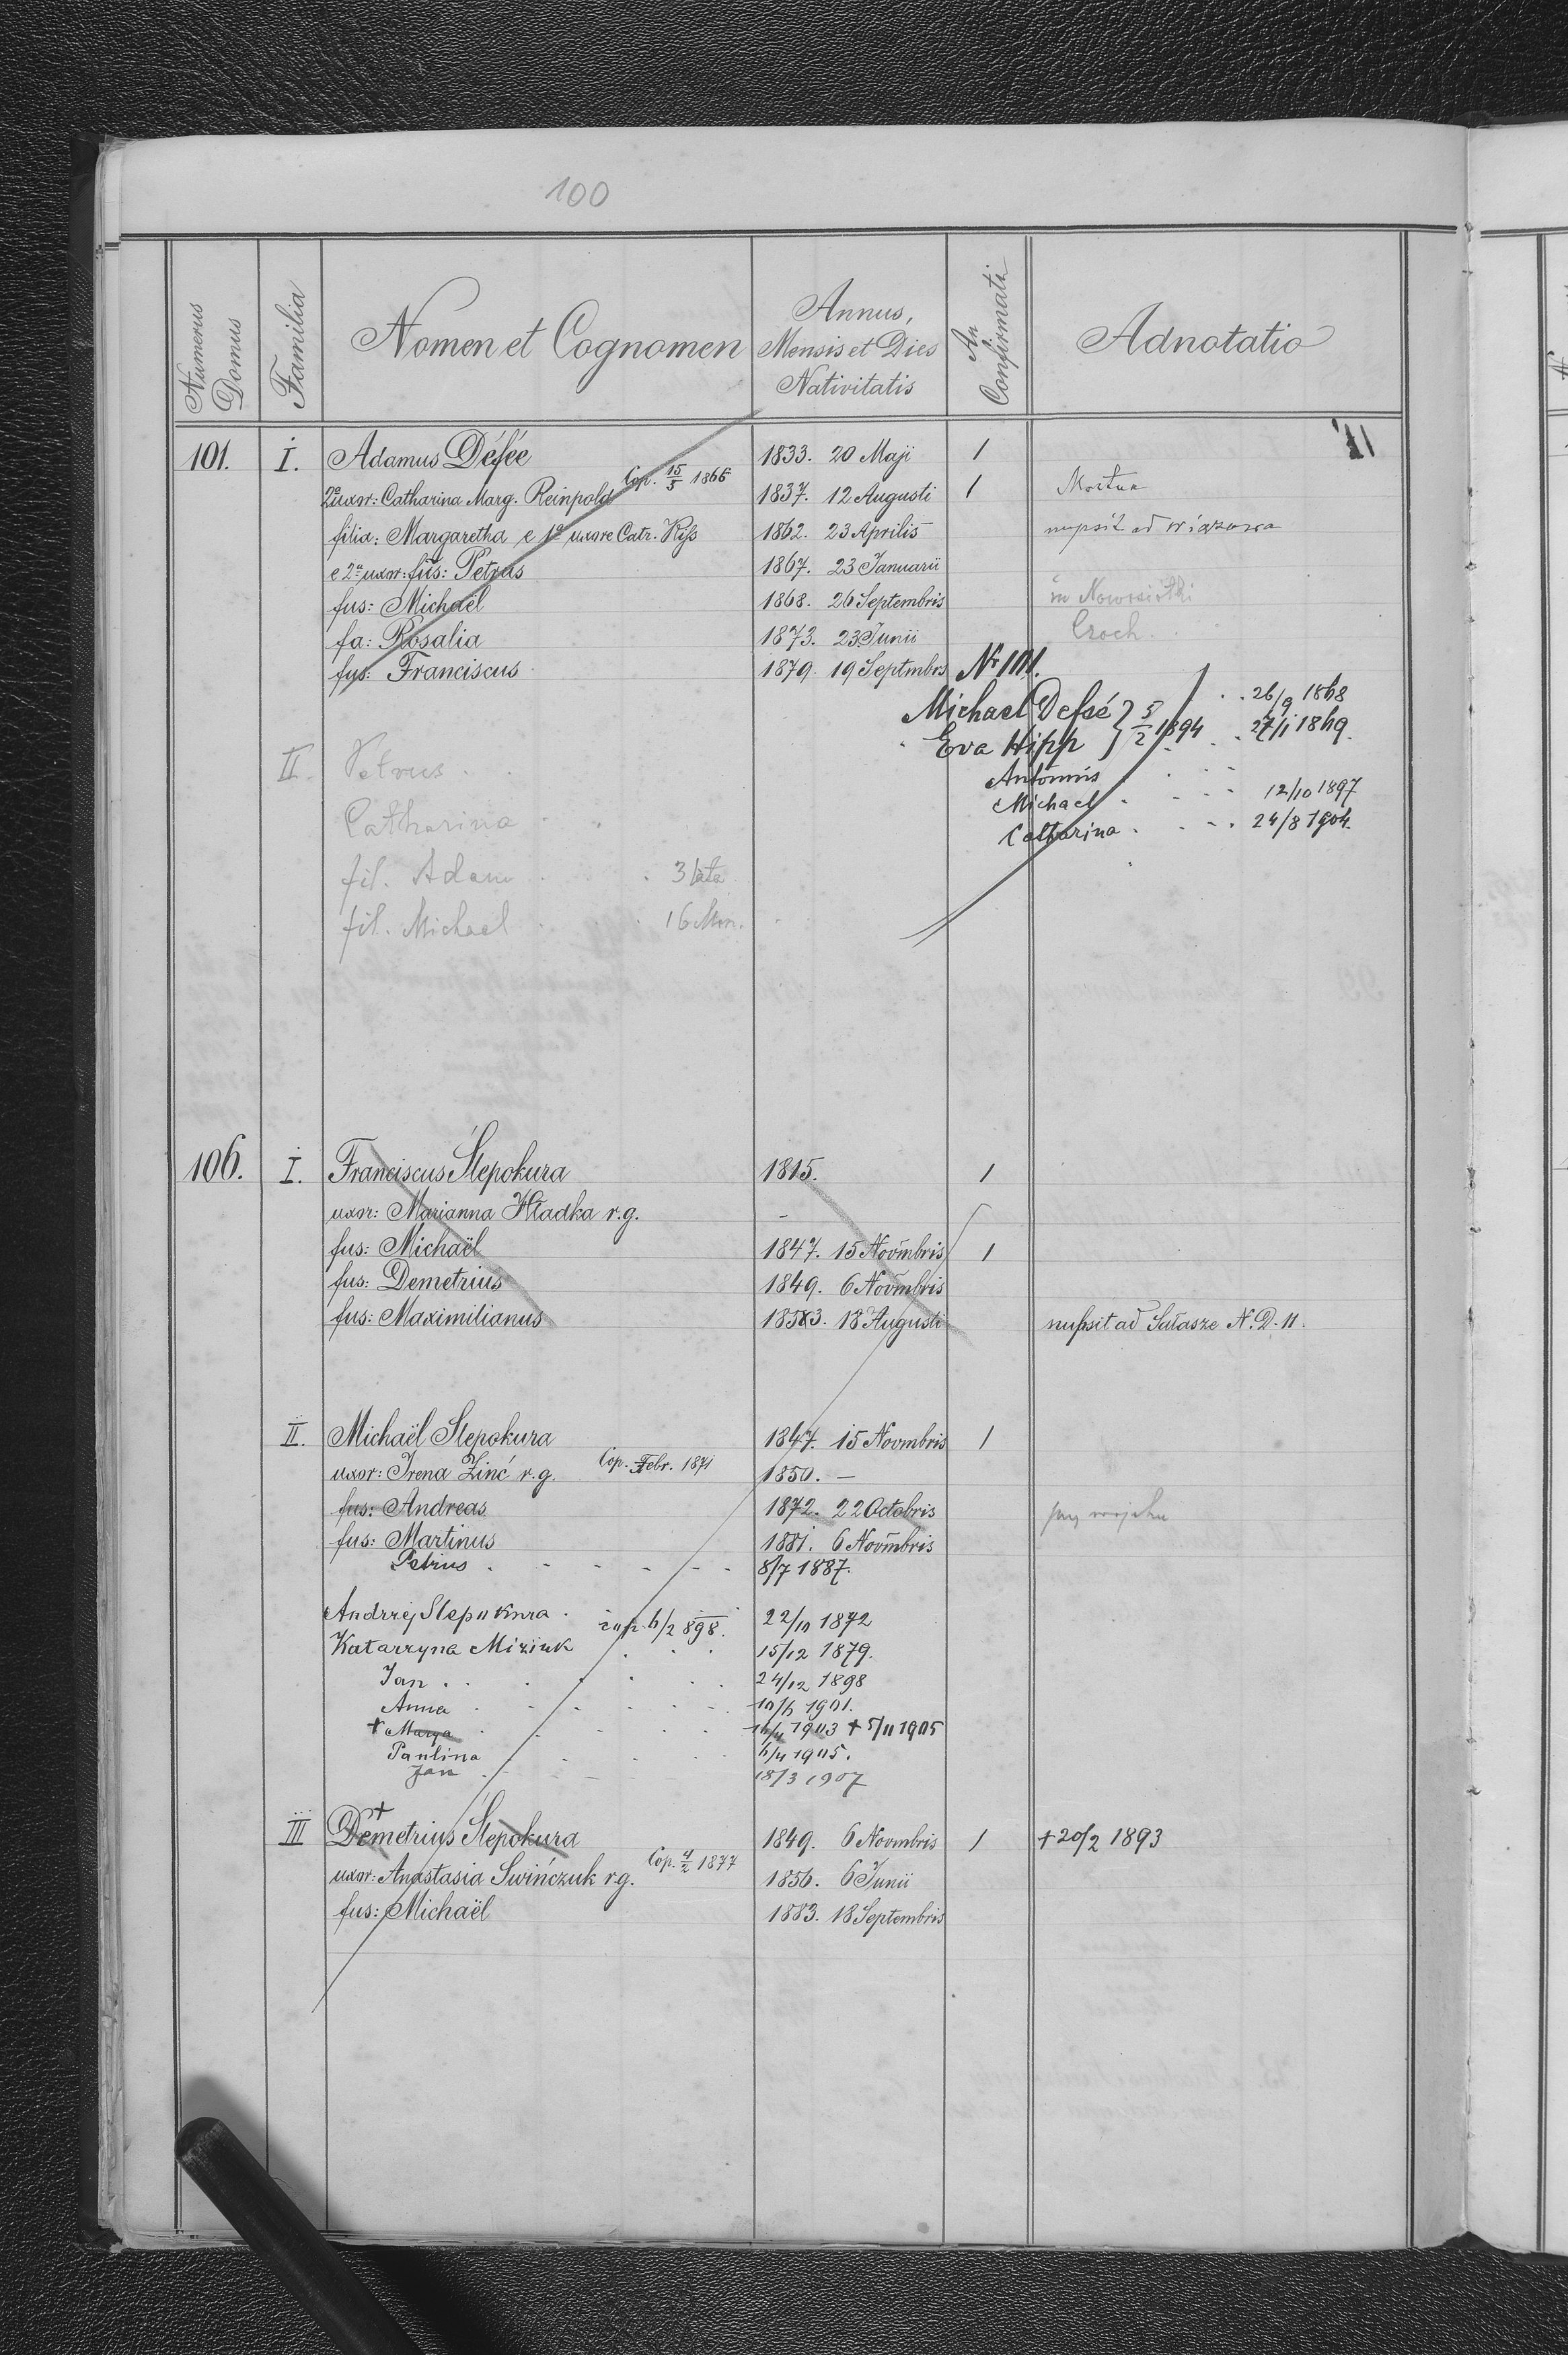 100
Numerus Domus
Familia
Nomen et Cognomen
Annus, Mensis et Dies Nativitatis
An Confirmati
Adnotatio
101. I. Adamus Défée 1833. 20 Maji 1
Cop. 15/5 1866
2a uxor: Catharina Marg. Reinpold 1837. 12 Augusti 1 Mortua
filia: Margaretha e 1a uxore Catr. Kiss 1862. 23 Aprilis nupsit ad Wiązowa
e 2a uxor: fus: Petrus 1867. 23 Januarii
fus: Michaël 1868. 26 Septembris in Nowosiółki
fa: Rosalia 1873. 23 Junii
fus: Franciscus 1879. 19 Septmbrs
Nr 101.
Michael Defsé } 5/2 1894 . . 26/9 1868
Eva Hipp . . 27/1 1869.
Antonius
Michael . - - - 12/10 1897
Catharina . - - . 24/8 1904.
II. Petrus
Catharina
fil. Adam 3 lata
fil. Michael 16 Mon.
106. I. Franciscus Ślepokura 1815. 1
uxor: Marianna Hładka r.g. -
fus: Michaël 1847. 15 Novmbris 1
fus: Demetrius 1849. 6 Novmbris
fus: Maximilianus 18583. 18 Augusti nupsit ad Sałasze N.D. 11.
II. Michaël Slepokura 1847. 15 Novmbris 1
Cop. Febr. 1871
uxor: Irena Zinć r.g. 1850. —
fus: Andreas 1872. 22 Octobris przy wojsku
fus: Martinus 1881. 6 Novmbris
Petrus . - - - - - 8/7 1887.
Andrzej Slepokura . cop. 6/2 898. 22/10 1872
Katarzyna Miziuk 15/12 1879.
Jan 24/12 1898
Anna 10/6 1901.
+ Marya 1903 + 5/11 1905
Paulina 6/4 1905.
Jan 18/3 1907
III + Demetrius Ślepokura 1849. 6 Novmbris 1 + 20/2 1893
Cop. 4/2 1877
uxor: Anastasia Swińczuk r.g. 1856. 6 Junii
fus: Michaël 1883. 18 Septembris